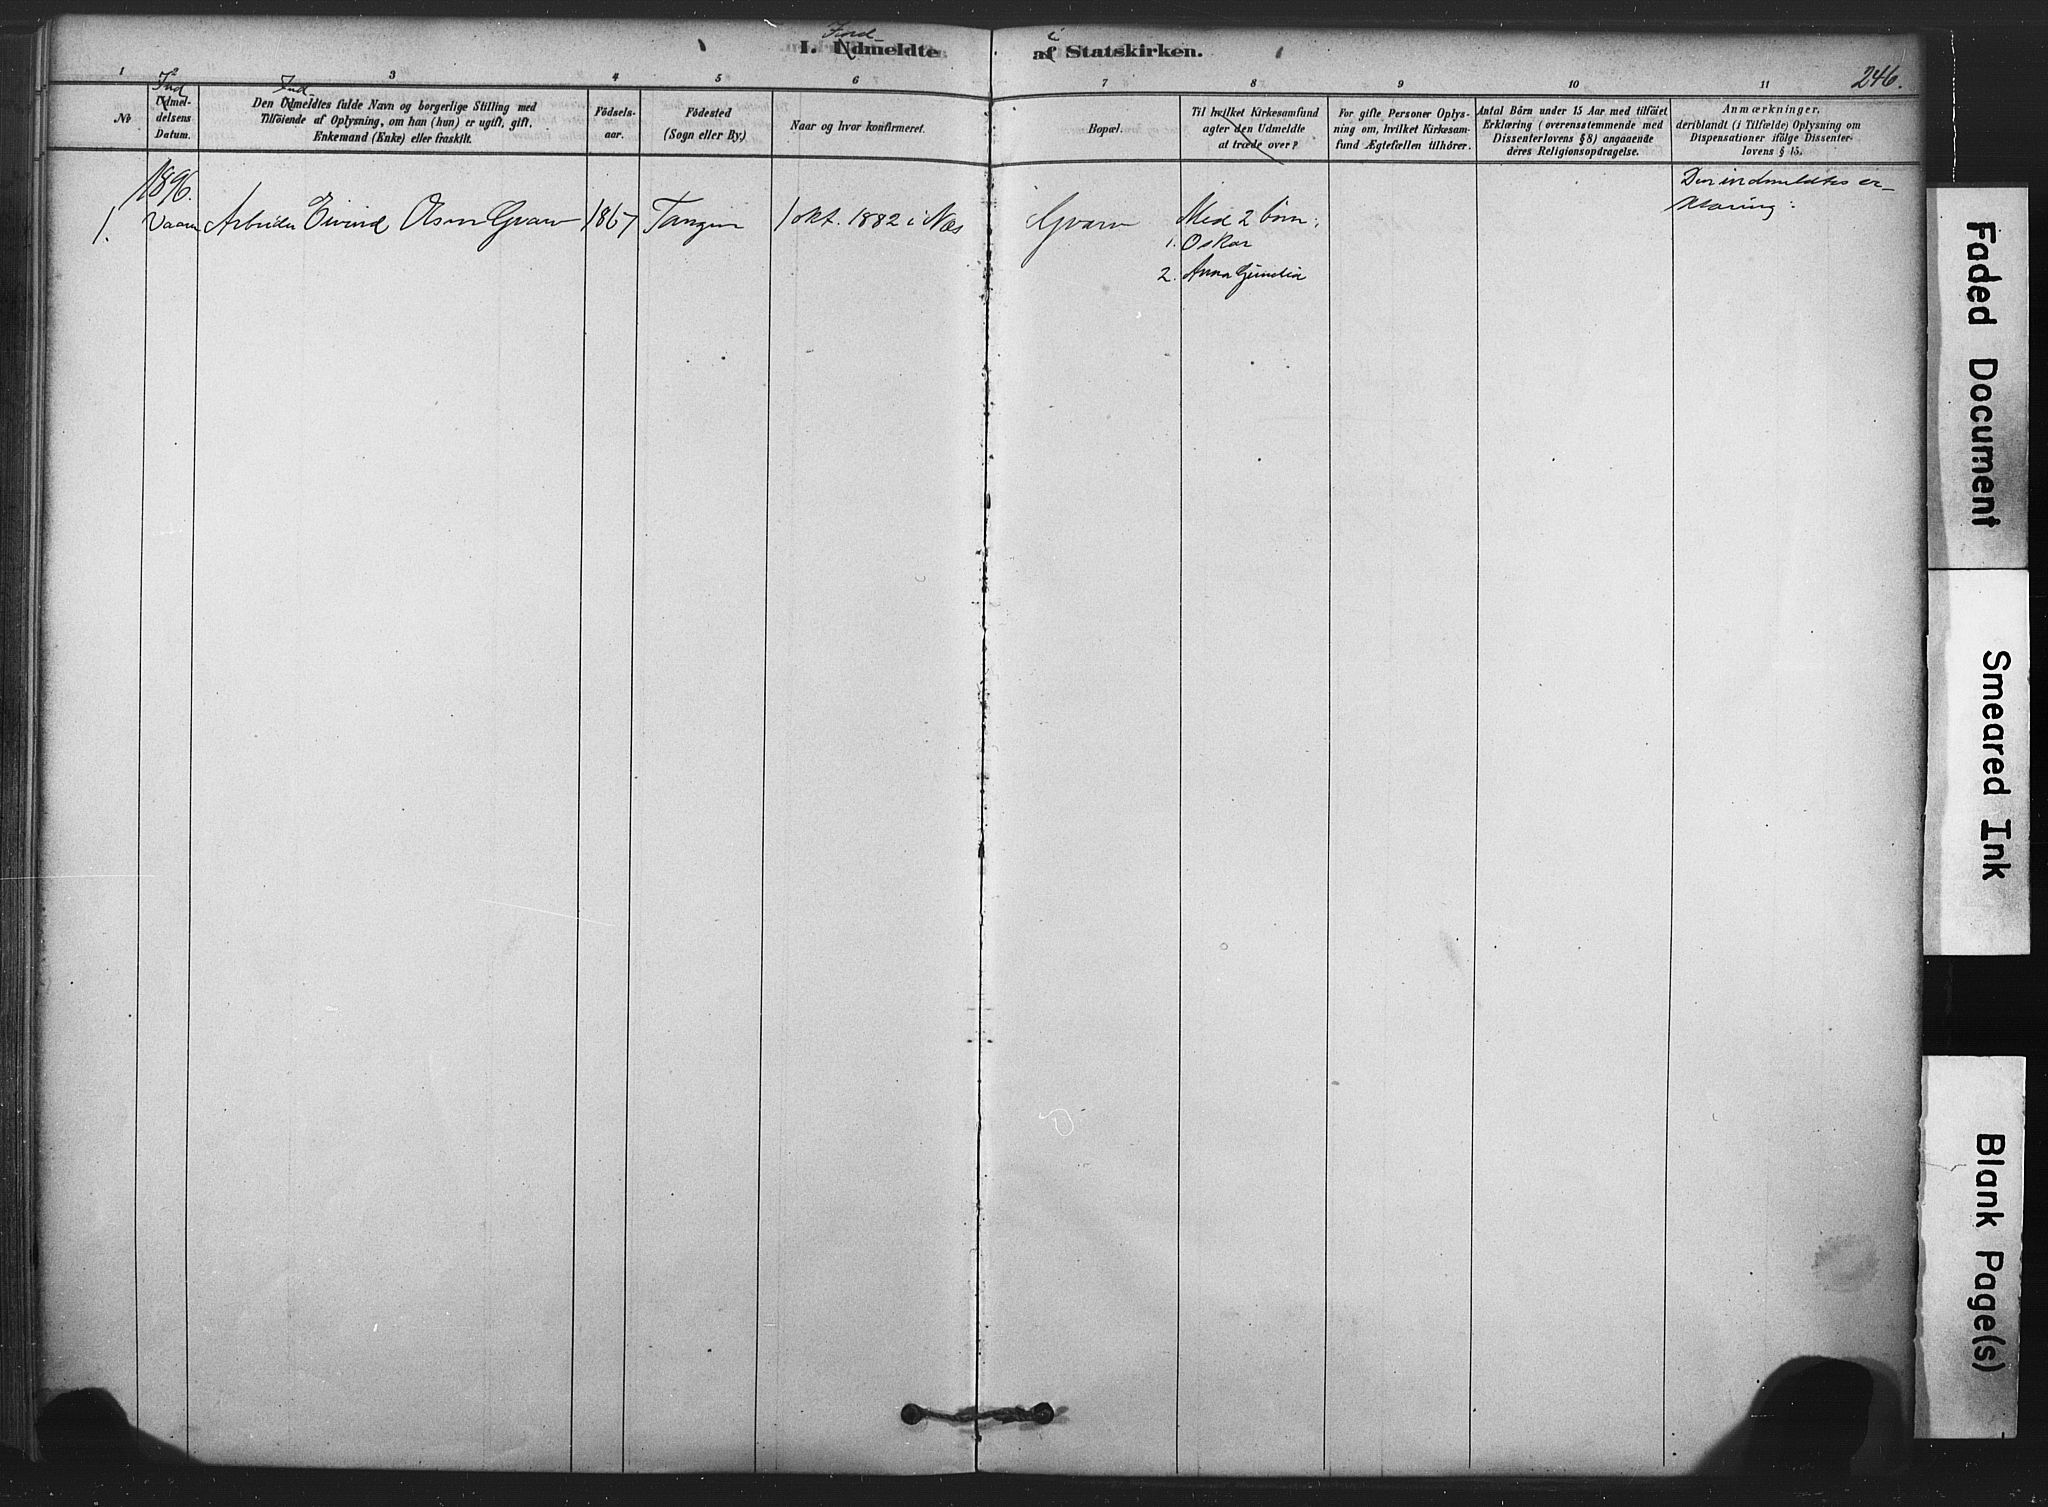 I. Udmeldte af Statskirken.
Ind- i
246.
1 2 3 4 5 6 7 8 9 10 11
No
Ind
Udmel-
delsens
Datum.
Ind-
Den Udmeldtes fulde Navn og borgerlige Stilling med
Tilføiende af Oplysning, om han (hun) er ugift, gift,
Enkemand (Enke) eller fraskilt.
Fødsels-
aar.
Fødested
(Sogn eller By.)
Naar og hvor konfirmeret.
Bopæl.
Til hvilket Kirkesamfund
agter den Udmeldte
at træde over?
For gifte Personer Oplys-
ning om, hvilket Kirkesam-
fund Ægtefællen tilhører.
Antal Børn under 15 Aar med tilføiet
Erklæring (overensstemmende med
Dissenterlovens § 8) angaaende
deres Religionsopdragelse.
Anmærkninger,
deriblandt (i Tilfælde) Oplysning om
Dispensationer ifølge Dissenter-
lovens § 15.
1896.
1. Vaaren Arbeider Eivind Olsen Gvarv 1867 Tangen 1 okt. 1882 i Næs Gvarv Med 2 børn:
1. Oskar
2. Anna
Den indmeldtes er-
klæring:
Faded Document
Smeared Ink
Blank Page(s)